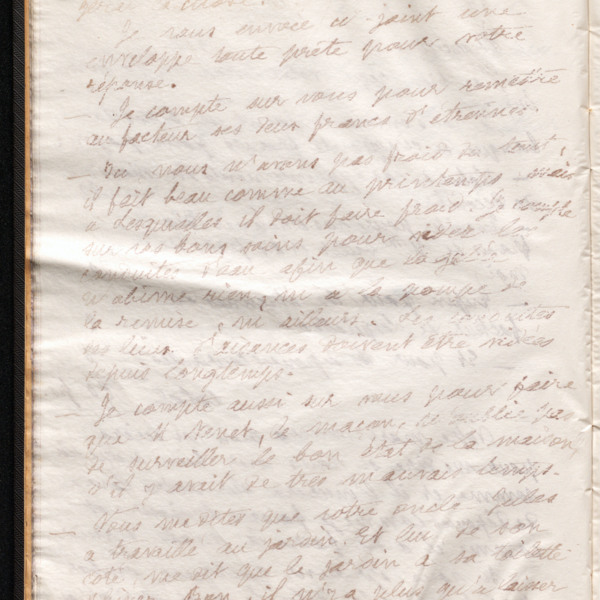 Je vous envoie ci joint une
enveloppe toute prête pour votre
réponse.
— Je compte sur vous pour remettre
au facteur ses deux francs d'étrennes.
— Ici nous n'avons pas froid du tout,
il fait beau comme au printemps mais
à il doit faire froid. Je compte
sur vos bons soins pour vider les
conduites d'eau afin que la
n'abime rien, ni à la pompe de
la remise, ni ailleurs. Les conduites
d'aisances doivent être vidées
depuis longtemps.
— Je compte aussi sur vous pour faire
que M. le maçon, n'oublie pas
de surveiller le bon état de la maison,
s'il y avait de très mauvais temps.
— Vous me dites que votre oncle
a travaillé au jardin. Et lui de son
côté, me dit que le jardin a sa toilette
bon, il n'y a plus qu'à laisser